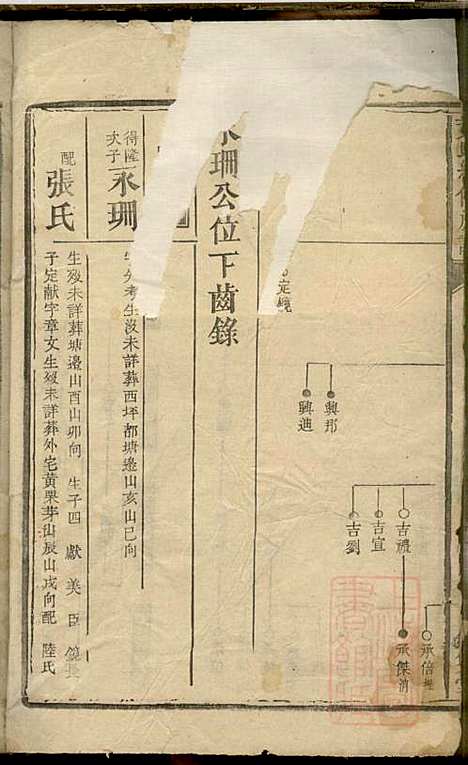 承倍
吉禮
承傑
吉宣
吉劉
興邦
興迪
永珊公位下齒錄
得隆次子
永珊
生沒未詳葬西坪都塘邊山亥山巳向
配
張氏
生歿未詳葬塘邊山酉山卯向 生子四 獻 美 臣 鏡 長
子定献字章文生歿未詳葬外宅黃栗芽山辰山戌向配 陸氏